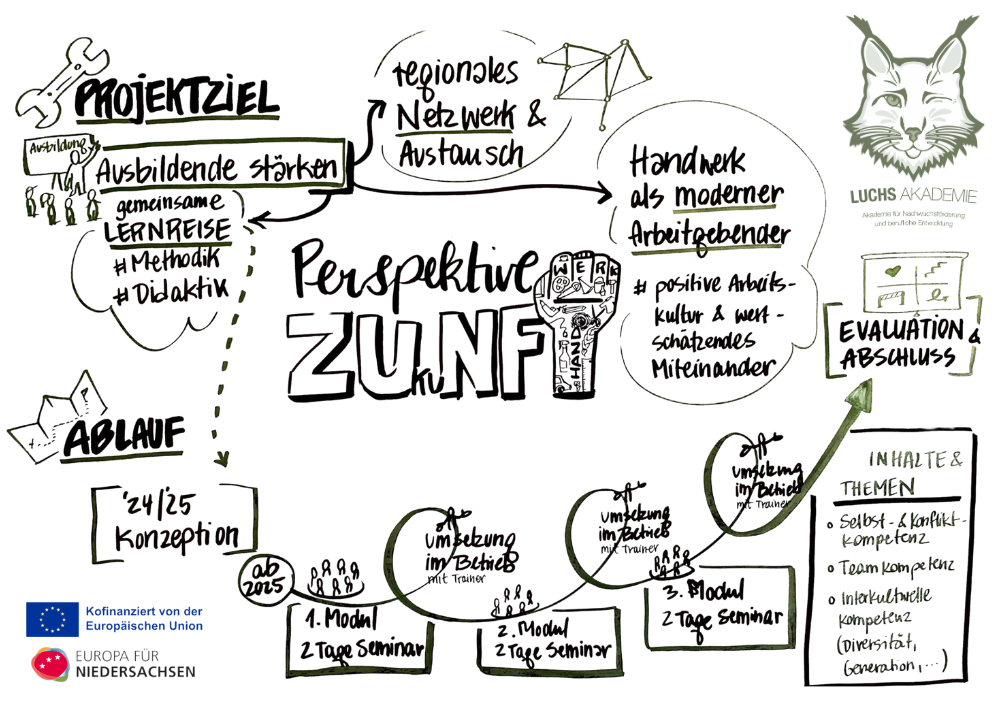 PROJEKTZIEL
Ausbildung
Ausbildende stärken
gemeinsame
LERNREISE
# Methodik
# Didaktik
regionales
Netzwerk &
Austausch
Handwerk
als moderner
Arbeitgebender
# positive Arbeits-
kultur & wert-
schätzendes
Miteinander
LUCHS AKADEMIE
Akademie für Nachwuchsförderung
und berufliche Entwicklung
Perspektive
ZUKUNF
WERK
HAND
EVALUATION &
ABSCHLUSS
ABLAUF
'24/'25
Konzeption
ab
2025
1. Modul
2 Tage Seminar
Umsetzung
im Betrieb
mit Trainer
2. Modul
2 Tage Seminar
Umsetzung
im Betrieb
mit Trainer
3. Modul
2 Tage Seminar
Umsetzung
im Betrieb
mit Trainer
INHALTE &
THEMEN
o Selbst- & Konflikt-
kompetenz
o Teamkompetenz
o Interkulturelle
Kompetenz
(Diversität,
Generation,...)
Kofinanziert von der
Europäischen Union
EUROPA FÜR
NIEDERSACHSEN